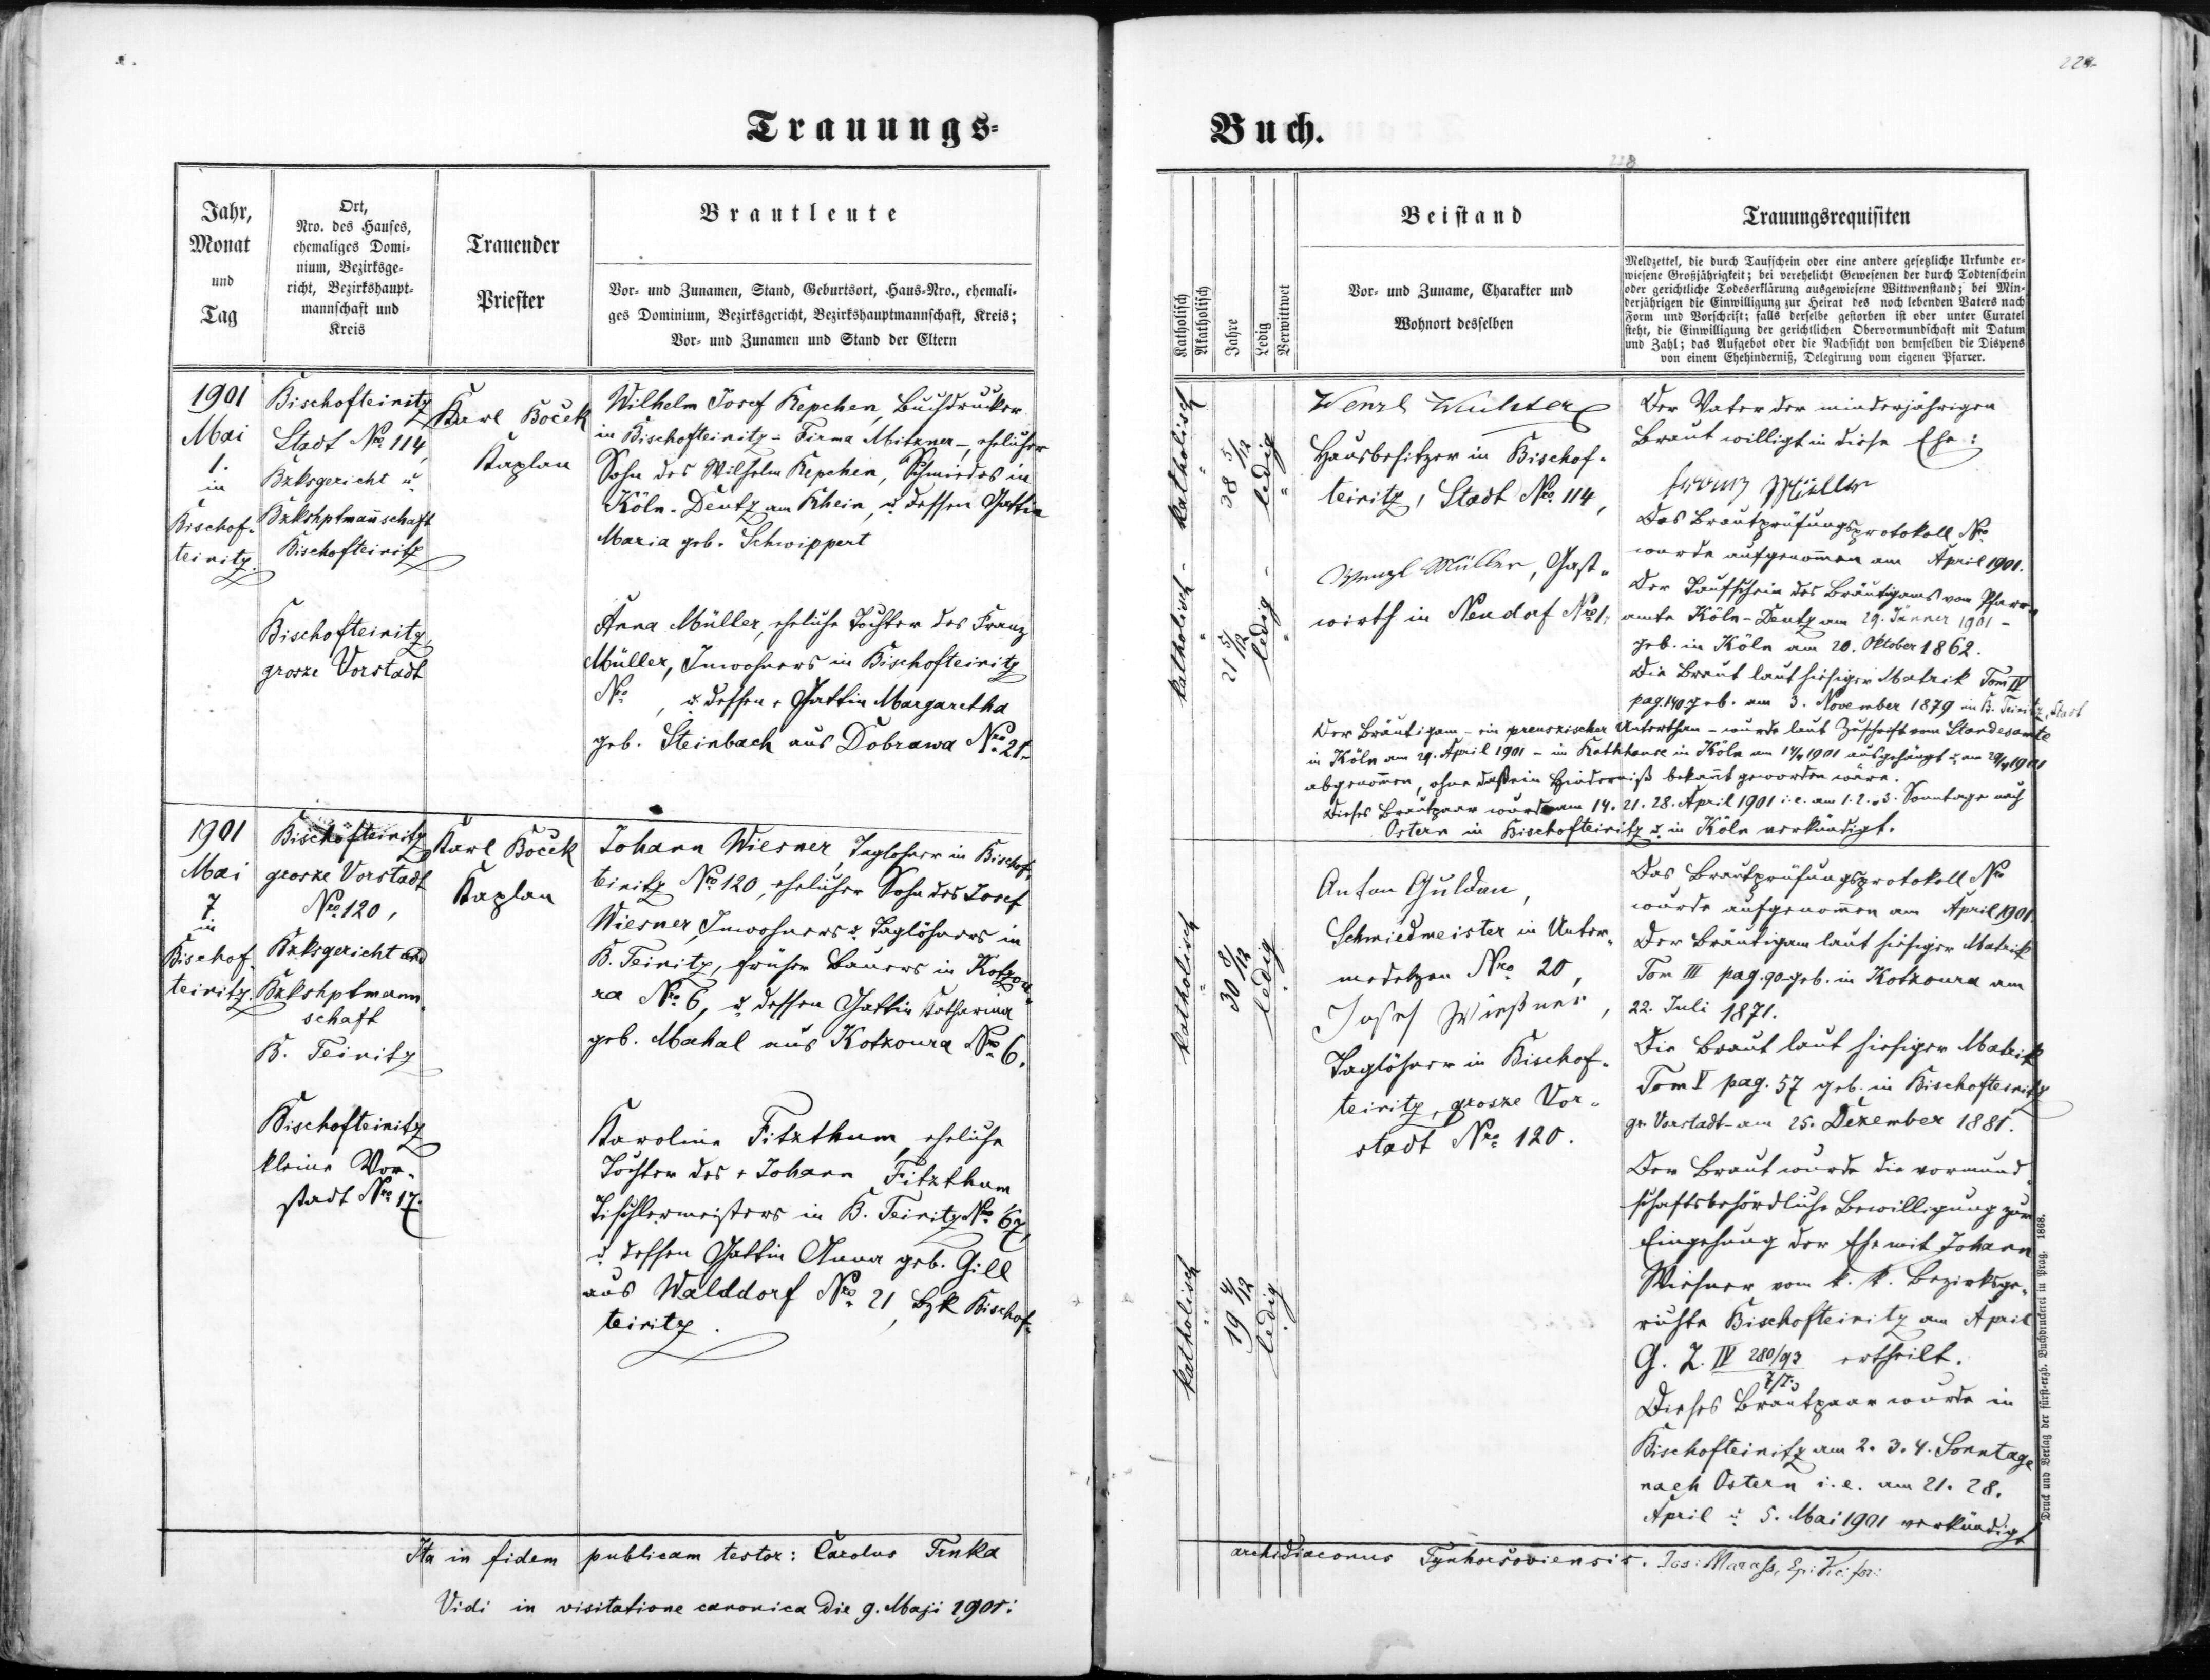 Trauungs-
Jahr,
Monat
und
Tag
Ort,
Nro. des Hauses,
ehemaliges Domi-
nium, Bezirksge-
richt, Bezirkshaupt-
mannschaft und
Kreis
Trauender
Priester
Brautleute
Vor- und Zunamen, Stand, Geburtsort, Haus-Nro., ehemali-
ges Dominium, Bezirksgericht, Bezirkshauptmannschaft, Kreis;
Vor- und Zunamen und Stand der Eltern
1901
Mai
1.
in
Bischof-
teinitz.
Bischofteinitz
Stadt Nro 114,
Bzksgericht u
Bzkshptmañschaft
Bischofteinitz
Karl Boček
Kaplan
Wilhelm Josef Kepchen, Buchdrucker
in Bischofteinitz - Firma Mitzner -, ehelicher
Sohn des Wilhelm Kepchen, Schmiedes in
Köln-Deutz am Rhein, u. dessen Gattin
Maria geb. Schwippert
Bischofteinitz,
grosze Vorstadt
Anna Müller, eheliche Tochter des Franz
Müller, Inwohners in Bischofteinitz
Nro , u. dessen + Gattin Margaretha
geb. Steinbach aus Dobrawa Nro 21.
1901
Mai
7.
in
Bischof-
teinitz.
Bischofteinitz
grosze Vorstadt
Nro 120,
Bzksgericht und
Bzkshptmann-
schaft
B. Teinitz
Karl Boček
Kaplan
Johann Wiesner, Taglöhner in Bischof-
teinitz Nro 120, ehelicher Sohn des Josef
Wiesner, Inwohners u. Taglöhners in
B. Teinitz, früher Bauers in Kotzou-
ra Nro 6, u. dessen Gattin Katharina
geb. Mahal aus Kotzoura Nro 6.
Bischofteinitz
kleine Vor-
stadt Nro 17.
Karoline Fitzthum, eheliche
Tochter des + Johann Fitzthum
Tischlermeisters in B. Teinitz Nro 67,
u. dessen Gattin Anna geb. Gill
aus Walddorf Nro 21, Bzk Bischof-
teinitz.
Ita in fidem publicam testor: Carolus Trnka
Vidi in visitatione canonica die 9. Maji 1901:
Buch.
228
Katholisch
Akatholisch
Jahre
Ledig
Verwittwet
Beistand
Vor- und Zuname, Charakter und
Wohnort desselben
Trauungsrequisiten
Meldzettel, die durch Taufschein oder eine andere gesetzliche Urkunde er-
wiesene Großjährigkeit; bei verehelicht Gewesenen der durch Todtenschein
oder gerichtliche Todeserklärung ausgewiesene Wittwenstand; bei Min-
derjährigen die Einwilligung zur Heirat des noch lebenden Vaters nach
Form und Vorschrift; falls derselbe gestorben ist oder unter Curatel
steht, die Einwilligung der gerichtlichen Obervormundschaft mit Datum
und Zahl; das Aufgebot oder die Nachsicht von demselben die Dispens
von einem Ehehinderniß, Delegirung vom eigenen Pfarrer.
katholisch
38 5/12
ledig
Wenzl
Hausbesitzer in Bischof-
teinitz, Stadt Nro 114,
katholisch
21 5/12
ledig
Wenzl Müller, Gast-
wirth in Neudorf Nro 1.
Der Vater der minderjährigen
Braut willigt in diese Ehe:
Franz Müller
Das Brautprüfungsprotokoll Nro
wurde aufgenom̄en am April 1901.
Der Taufschein des Bräutigams vom Pfarr-
amte Köln-Deutz am 29. Jänner 1901 -
geb. in Köln am 20. Oktober 1862.
Die Braut laut hiesiger Matrik Tom IV
pag. 140 geb. am 3. November 1879 in B. Teinitz, Stadt
Der Bräutigam - ein preuszischer Unterthan - wurde laut Zuschrift vom Standesamte
in Köln am 29. April 1901 - in Rathhause in Köln am 14/4 1901 ausgehängt u. am 29/4 1901
abgenom̄en, ohne daß ein Hinderniß bekan̄t geworden wäre.
Dieses Brautpaar wurde am 14. 21. 28. April 1901 i. e. am 1. 2. u. 3. Sonntage nach
Ostern in Bischofteinitz u. in Köln verkündigt.
katholisch
30 8/12
ledig
Anton Guldan,
Schmiedmeister in Unter-
medelzen Nro 20,
Josef Wießner,
Taglöhner in Bischof-
teinitz, grosze Vor-
stadt Nro 120.
katholisch
19 4/12
ledig
Das Brautprüfungsprotokoll Nro
wurde aufgenom̄en am April 1901.
Der Bräutigam laut hiesiger Matrik
Tom III pag. 90 geb. in Kotzoura am
22. Juli 1871.
Die Braut laut hiesiger Matrik
Tom V pag. 57 geb. in Bischofteinitz
gr. Vorstadt am 25. Dezember 1881.
Der Braut wurde die vormund-
schaftsbehördliche Bewilligung zur
Eingehung der Ehe mit Johann
Wiesner vom k. k. Bezirksge-
richte Bischofteinitz am April
G. Z. IV 280/93 ertheilt.
Dieses Brautpaar wurde in
Bischofteinitz am 2. 3. 4. Sonntage
nach Ostern i. e. am 21. 28.
April u. 5. Mai 1901 verkündigt
archidiaconus Tynhoršoviensis.
Druck und Verlag der fürst-erzb. Buchdruckerei in Prag. 1868.